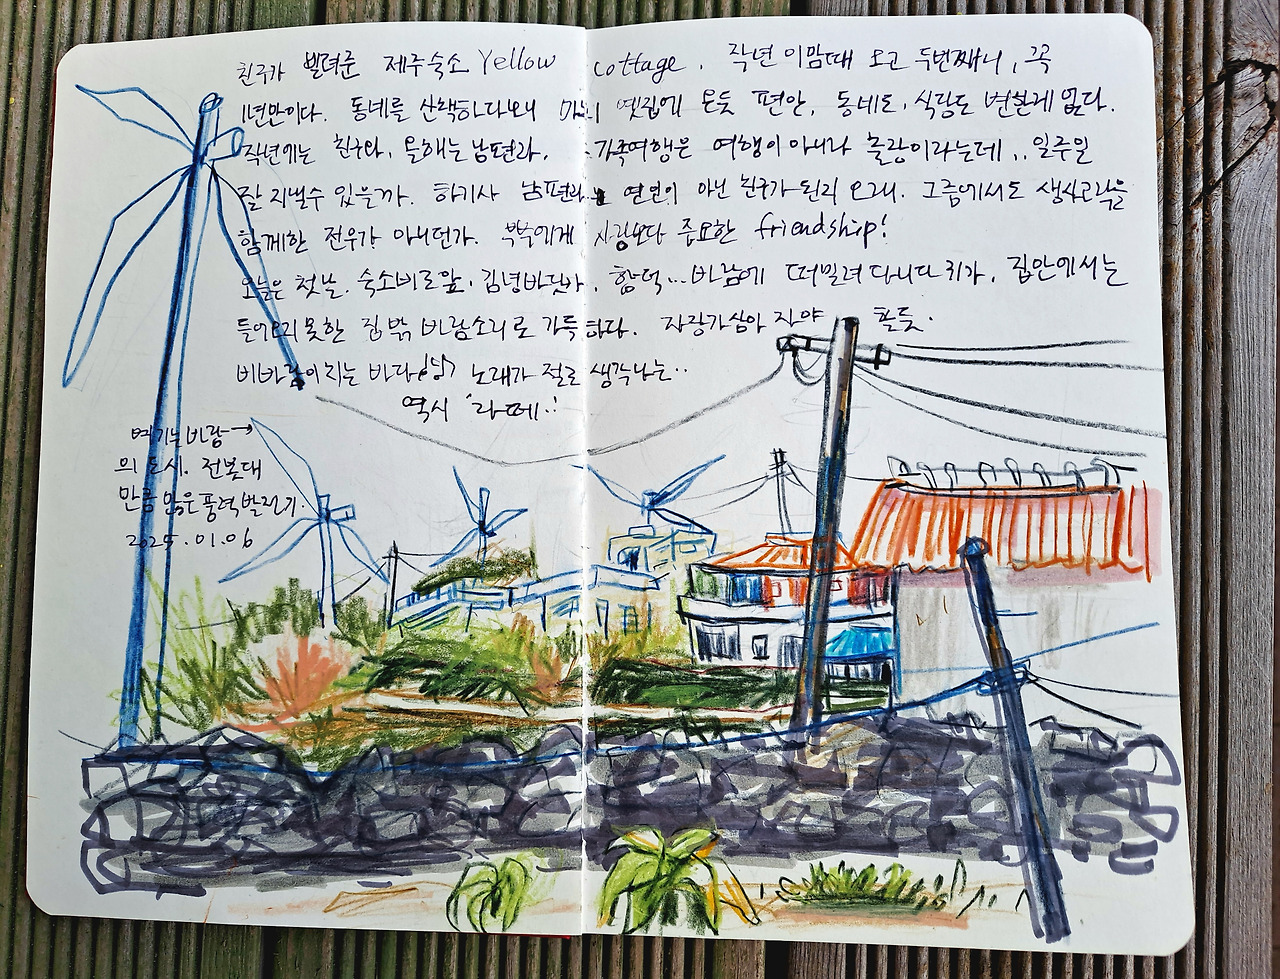 친구가 빌려준 제주숙소 Yellow cottage. 작년 이맘때 오고 두번째니, 꼭
1년만이다. 동네를 산책하다보니 마치 옛집에 온듯 편안, 동네도, 식당도 변한게 없다.
작년에는 친구와, 올해는 남편과. 가족여행은 여행이 아니라 출장이라는데.. 일주일
잘 지낼수 있을까. 하기사 남편과는 연인이 아닌 친구가 된지 오래. 그중에서도 생사고락을
함께한 전우가 아니던가. 부부에게 사랑보다 중요한 friendship!
오늘은 첫날. 숙소바로앞. 김녕바닷가, 함덕...바람에 떠밀려 다니다 귀가, 집안에서는
들어오지 못한 집밖 바람소리로 가득하다. 자장가삼아 자야 할듯.
비바람이 치는 바다 노래가 절로 생각나는..
역시 '라떼..!
여기는 바람→
의 도시. 전봇대
만큼 많은 풍력발전기.
2025.01.06